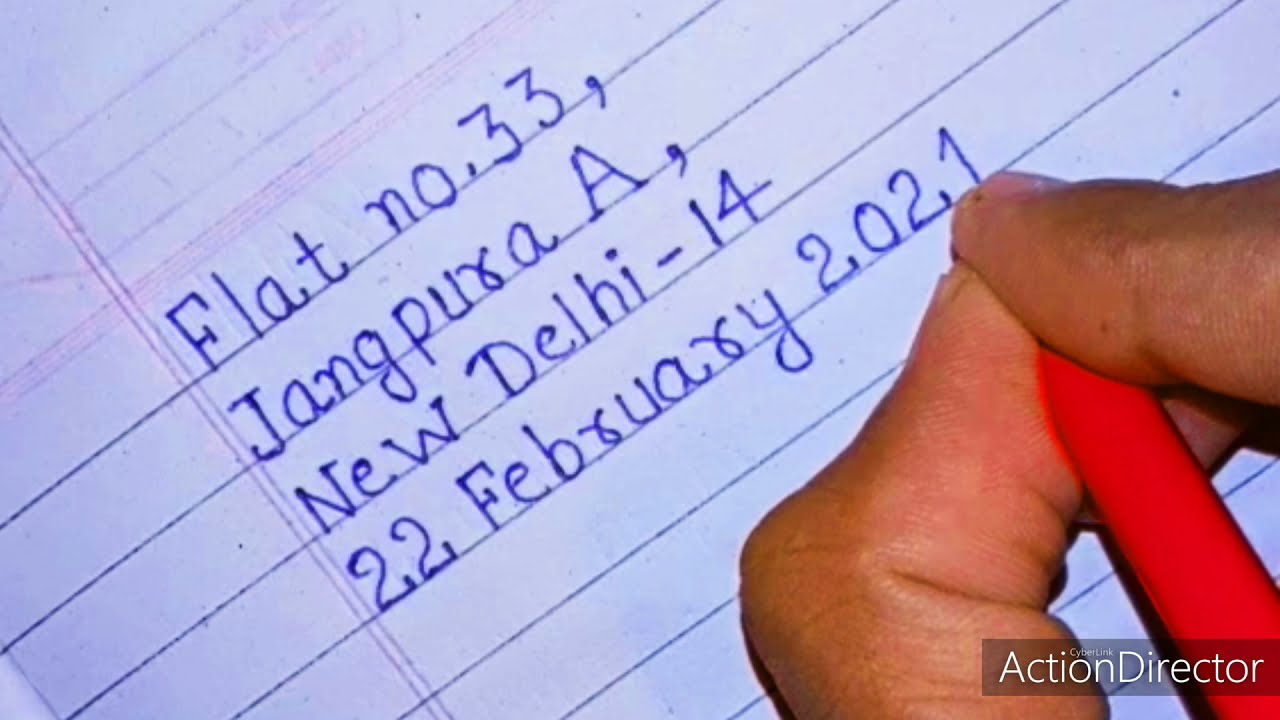 Flat no.33,
Jangpura A,
New Delhi-14
22 February 2021
CyberLink
ActionDirector